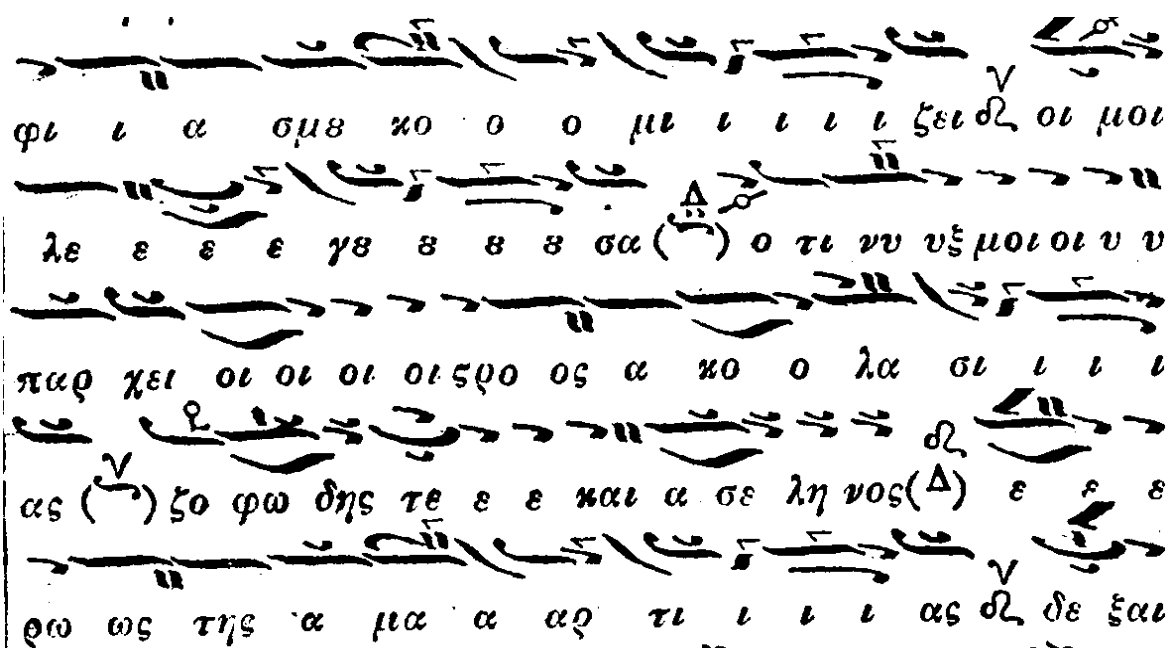 φι ι α σμȣ κο ο ο μι ι ι ι ι ζει οι μοι
λε ε ε ε γȣ ȣ ȣ ȣ σα (Δ) ο τι νυ υξ μοι οι υ υ
παρ χει οι οι οι οι ϛρο ος α κο ο λα σι ι ι ι
ας (ν) ζο φω δης τε ε ε και α σε λη νος (Δ) ε ε ε
ρω ως της α μα α αρ τι ι ι ι ας δε ξαι